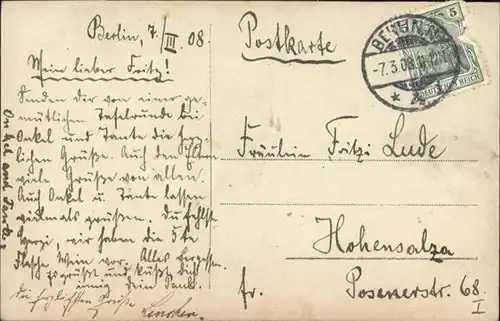 Berlin, 7/III 08.
Mein lieber Fritz!
Senden dir von einer ge-
mütlichen Tafelrunde bei
Onkel und Tante die herz-
lichen Grüße. Auch den Eltern
viele Grüße von allen.
Auch Onkel u. Tante lassen
vielmals grüßen. Du fehlst
, wir haben die 5te
Flasche Wein vor. Alles
gegrüßt und küßt Dich
innig dein
Die herzlichsten Grüße
Lenchen.
Onkel und Tante
Postkarte
BERLIN, N.
-7.3.08.
5
DEUTSCHES REICH
Fräulein Fritzi Lude
Hohensalza
Posenerstr. 68
I
fr.